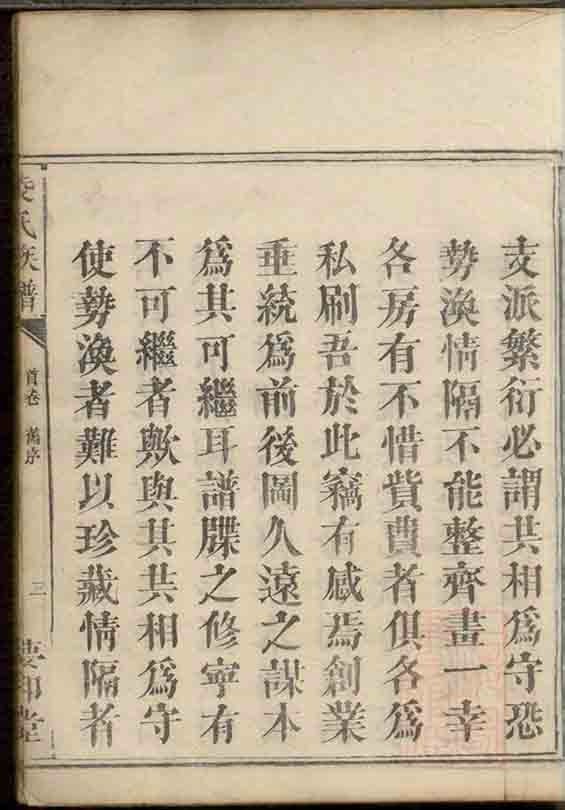 支派繁衍必謂共相爲守恐
勢渙情隔不能整齊畫一幸
各房有不惜貲費者俱各爲
私刷吾於此竊有感焉創業
垂統爲前後圖久遠之謀本
爲其可繼耳譜牒之修寧有
不可繼者歟與其共相爲守
使勢渙者難以珍藏情隔者
氏族譜
首卷 舊序
三
堂